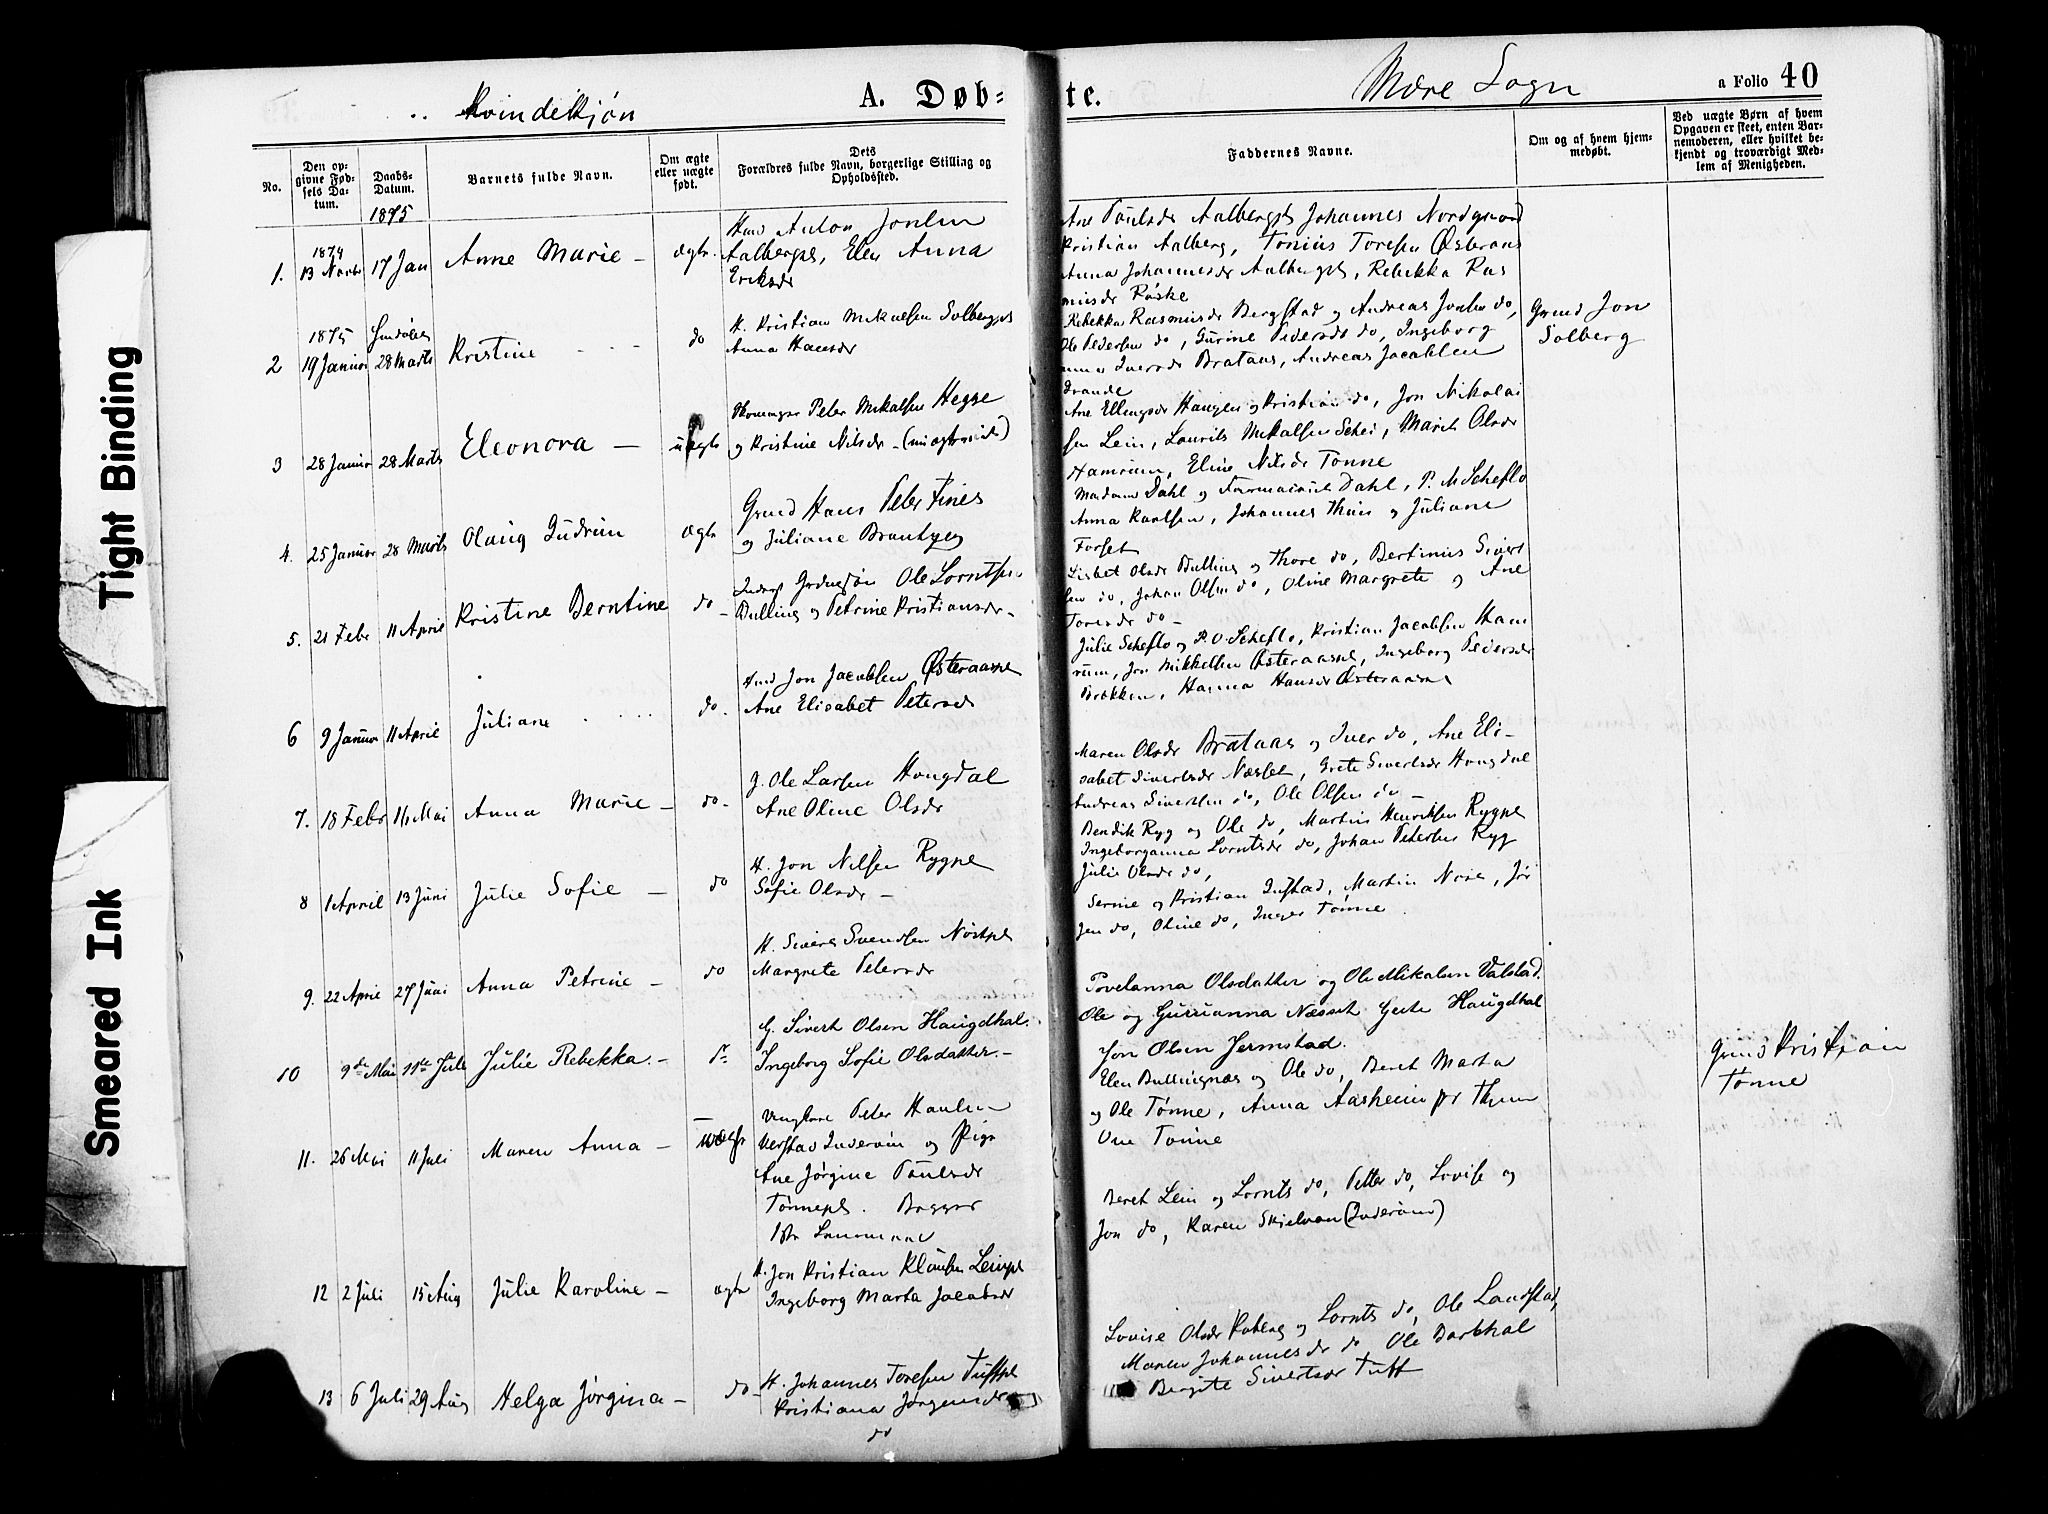 Tight Binding
Smeared Ink
Kvindekjøn
A. Døb=
te.
Mære Sogn
a Folio 40
No.
Den op-
givne Fød-
sels Da-
tum.
Daabs-
Datum.
1875
Barnets fulde Navn.
Om ægte
eller uægte
født.
Dets
Forældres fulde Navn, borgerlige Stilling og
Opholdssted.
Faddernes Navne.
Om og af hvem hjem-
medøbt.
Ved uægte Børn af hvem
Opgaven er skeet, enten Bar-
nemoderen, eller hvilket be-
kjendt og troværdigt Med-
lem af Menigheden.
1. 1874 13 Novbr 17 Jan Anne Marie – ægte.
Anton Jonsen
Aalbergpl, Elen Anna
Eriksdr
Ane Paulsdr Aalbergpl Johannes Nordgaard
Kristian Aalberg, Tonius Toresen Østeraas
Anna Johannesdr Aalbergpl, Rebekka Ras
musdr Røske
2 1875 19 Januar 28 Marts Kristine do
H. Kristian Mikalsen Solbergpl
Anna Hansdr
Rebekka Rasmusdr Bergstad og Andreas do,
Ole Pedersen do, Gurine Pedersdr do, Ingeborg
Iversdr Brataas, Andreas Jacobsen
Grund Jon
Solberg
3 28 Januar 28 Marts Eleonora – uægte
Peter Mikalsen Hegge
og Kristine Nilsdr –
Ane Ellingsdr Haugen og Kristian do, Jon Nikolai
sen Lein, Laurits Mikalsen Schei, Marit Olsdr
Hamrum, Eline Nilsdr Tønne
4. 25 Januar 28 Marts Olaug Gudrun ægte
Grund Hans Peter Fines
og Juliane
Madam Dahl og Dahl, P. M Scheflo
Anna Karlsen, Johannes og Juliane
Forset
5. 21 Febr 11 April Kristine Berntine do
Ole Lorntsen
Bulling og Petrine Kristiansdr –
Lisbet Olsdr Bulling og Thore do, Bertinus Sivert
sen do, Johan Olsen do, Oline Margrete og Ane
Toresdr do –
6 9 Januar 11 April Juliane do.
Jon Jacobsen Østeraaspl
Ane Elisabet Petersdr
Julie Scheflo og P. O. Scheflo, Kristian Jacobsen Ham
rum, Jon Mikkelsen Østeraaspl, Ingeborg Pedersdr
Brekken, Hanna Hansdr Østeraasen
7. 18 Febr 16 Mai Anna Marie – do –
G. Ole Larsen Hougdal
Ane Oline Olsdr
Maren Olsdr Brataas og Iver do, Ane Eli-
sabet Sivertsdr Næsset, Grete Sivertsdr Hougdal
Andreas Sivertsen do, Ole Olsen do –
8 1 April 13 Juni Julie Sofie – do
H. Jon Nilsen Rygpl
Sofie Olsdr –
Bendik Ryg og Ole do, Martin Henriksen Rygpl
Ingeborganna Lorntsdr do, Johan Petersen Ryg
Julie Olsdr do,
9. 22 April 27 Juni Anna Petrine – do
H. Sivert Svendsen
Margrete Petersdr
og Kristian, Martin, Jør
gen do, Oline do, Inger Tønne.
10 9de Mai 11te Juli Julie Rebekka. –
G. Sivert Olsen Haugdhal.
Ingeborg Sofie Olsdatter. –
Povelanna Olsdatter og Ole Mikalsen Valstad.
Ole og Guruanna Næsset Grete Haugdhal
Jon Olsen Jermstad.
11. 26 Mai 11 Juli Maren Anna – uægte
Ungkarl Peter Hansen
Inderøen og Pige
Ane Jørgine Paulsdr
Tønnepl.
Elen Bullingnæs og Ole do, Beret Marta
og Ole Tønne, Anna Aasheim
Tønne
Grund Kristian
Tønne
12 2 Juli 15 Aug Julie Karoline – ægte
H. Jon Kristian Leinpl
Ingeborg Marta Jacobsdr
Beret Lein og Lornts do, Petter do, Lovise og
Jon do, Karen Skjelvan (Inderøen)
13 6 Juli 29 Aug Helga Jørgina – do –
H. Johannes Toresen Tuftpl
Kristiana Jørgensdr
do
Lovise Olsdr og Lornts do, Ole Landstad,
Maren Johannesdr do Ole
Birgite Sivertsdr Tuft